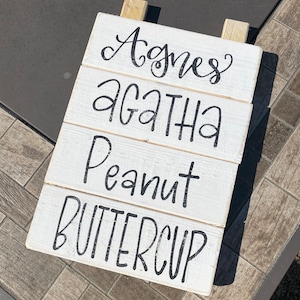 Agnes
aGaTHa
Peanut
BUTTERCUP